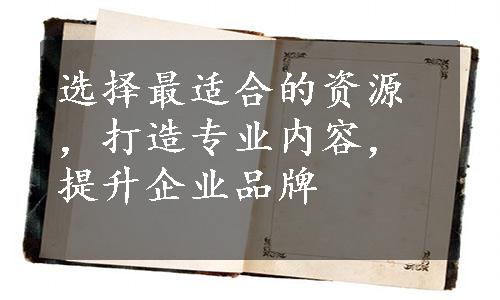 选择最适合的资源
，打造专业内容，
提升企业品牌